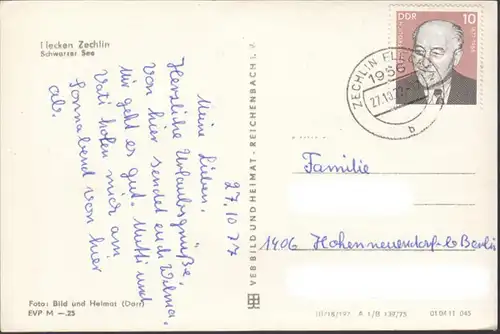 Flecken Zechlin
Schwarzer See
27.10.77
Meine Lieben,
Herzliche Urlaubsgrüße
von hier sendet euch Wilma.
Mir geht es gut. Mutti und
Vati holen mich am
Sonnabend von hier
ab.
Foto: Bild und Heimat (Darr)
EVP M –.25
VEB BILD UND HEIMAT · REICHENBACH I. V.
DDR 10
ZECHLIN FLE
27.10.77
b
Familie
1406 Hohenneuendorf b Berlin
A 1/B 137/75
01 04 11 045